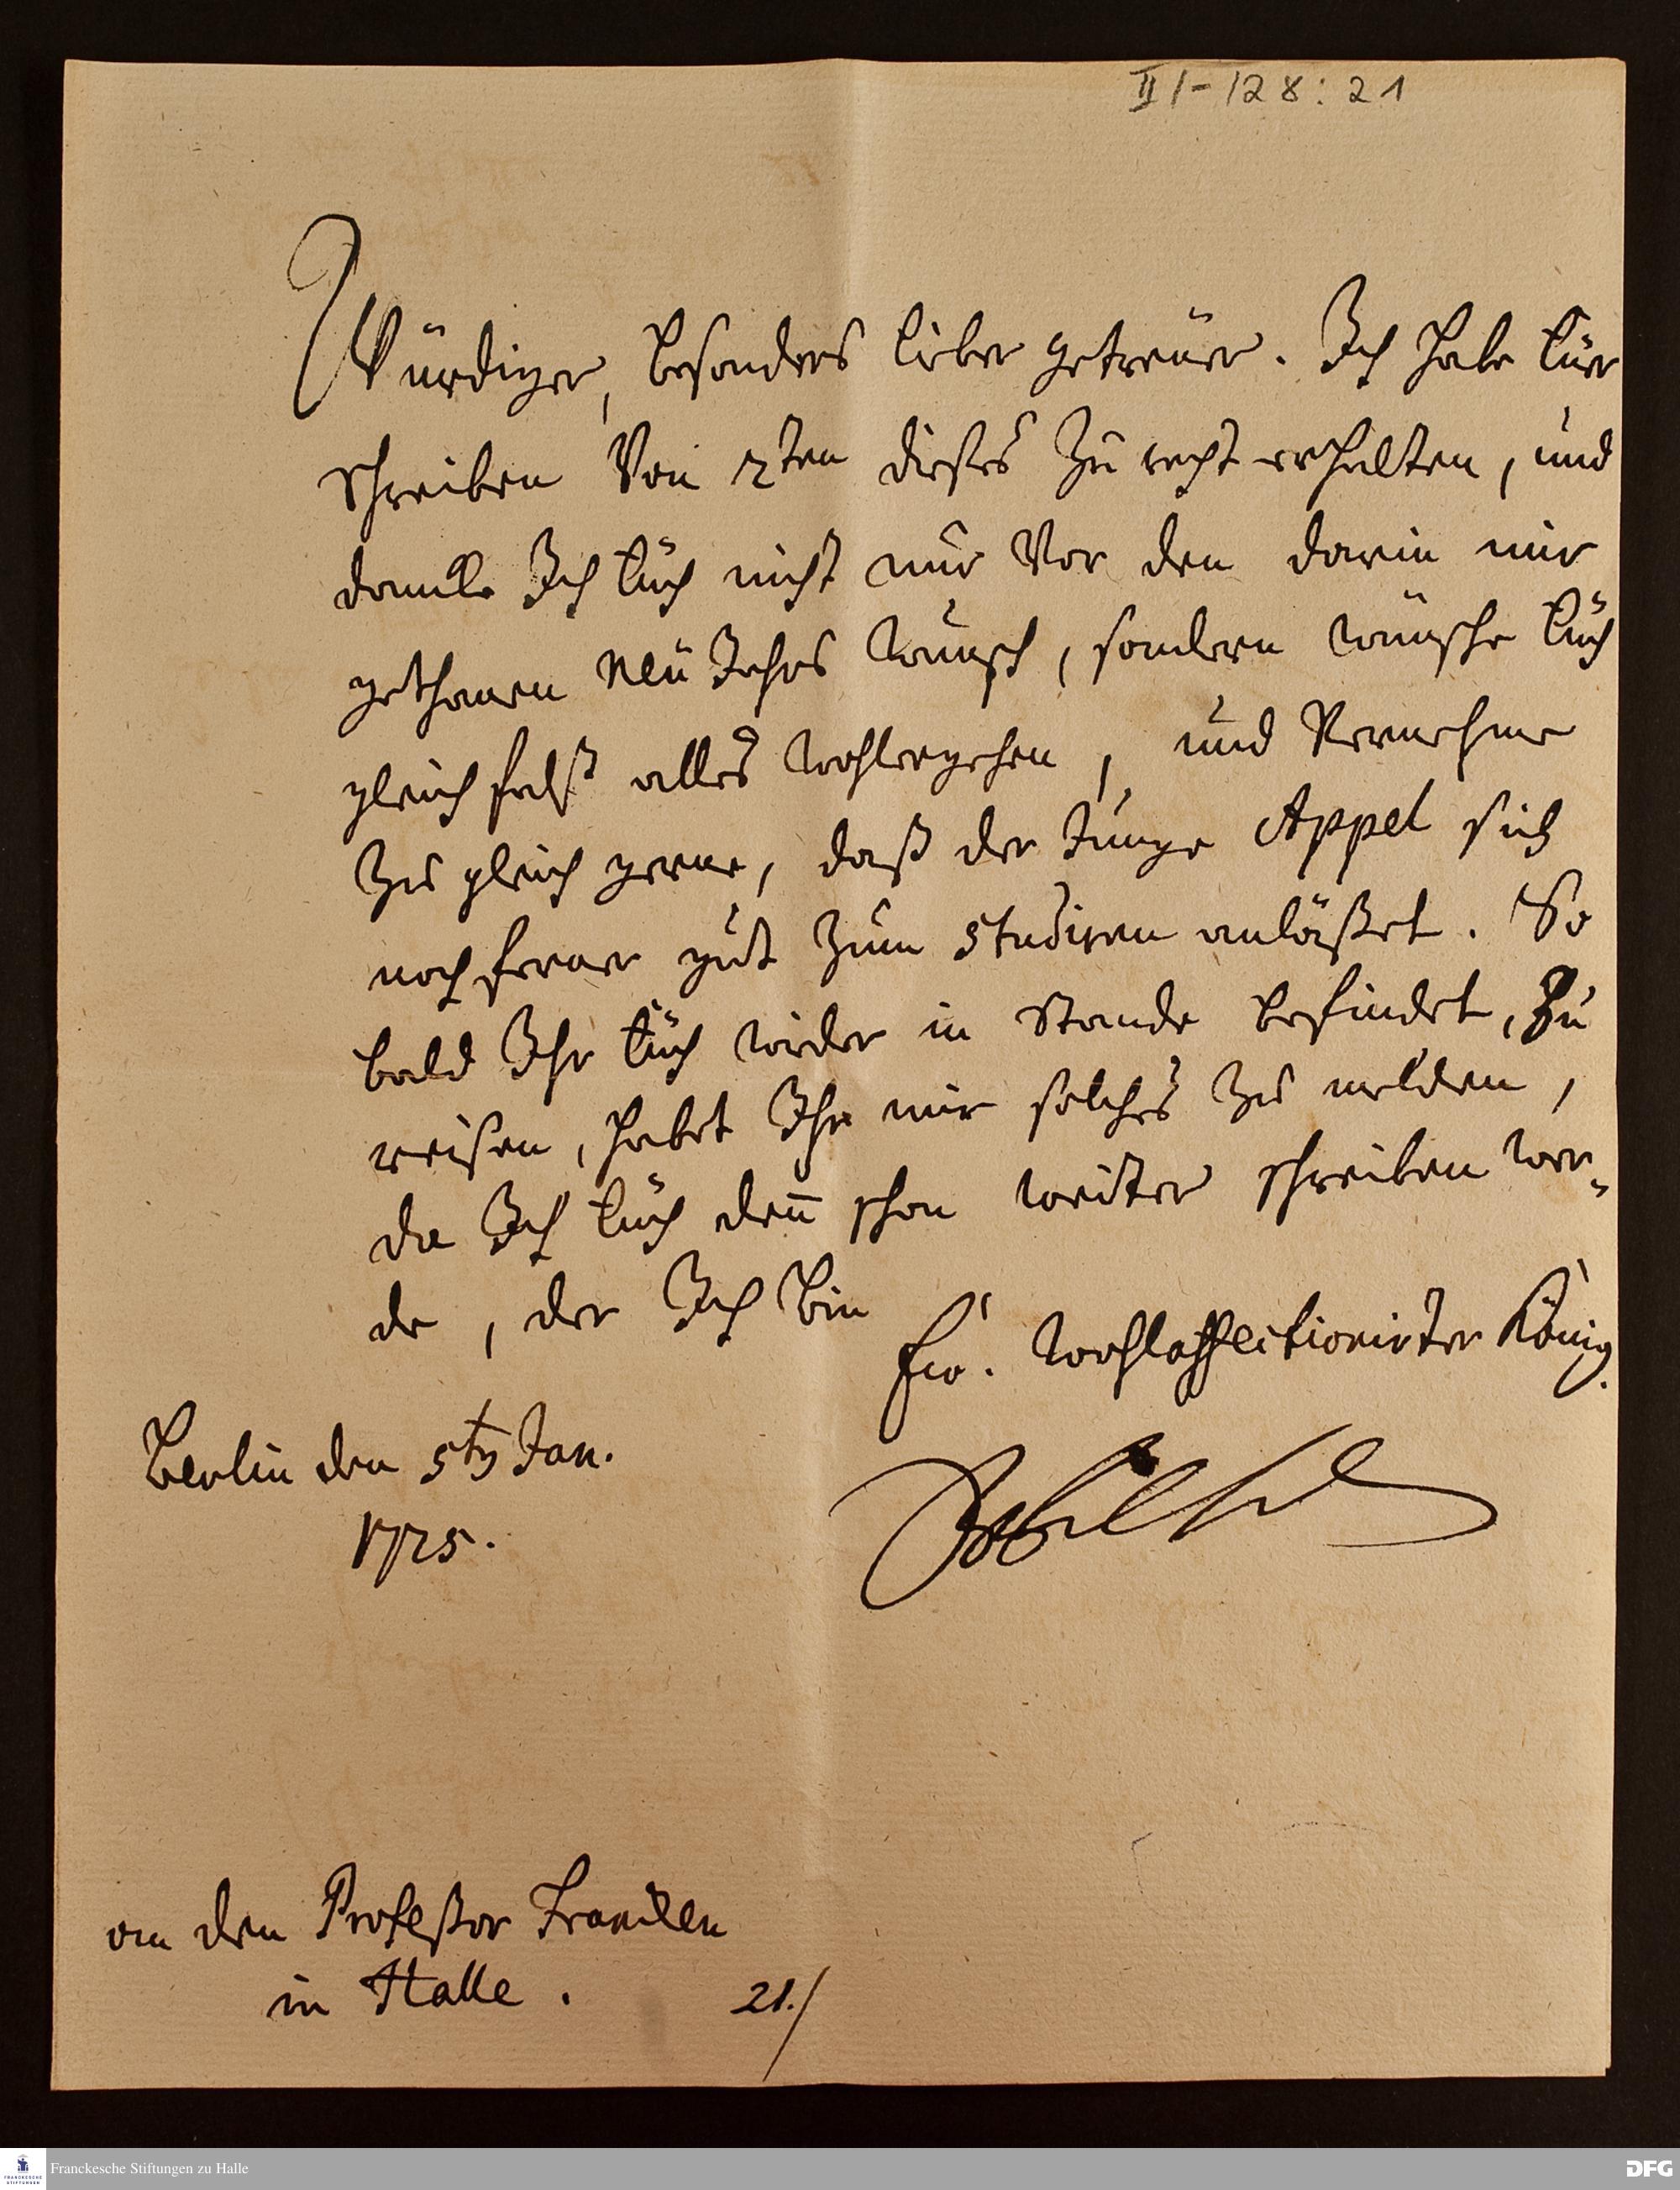 II/-/28:21
Würdiger, besonders lieber getreüer. Ich habe Eüer
schreiben Von 2ten dieses Zu recht erhalten, und
dancke Ich Eüch nicht nur Vor den darin mir
gethanen Neu Jahrs Wunsch, sondern wünsche Eüch
gleichfalß alles wohlergehen, und Vernehme
Zu gleich gerne, daß der Junge Appel sich
noch ferner gut Zum studiren anläßet. So
bald Ihr Eüch wider in Stande befindet, Zu
reisen, habet Ihr mir solches Zu melden,
da Ich Eüch den̅ schon weiter schreiben wer-
de, der Ich bin
Ew. Wohlaffectionirter König.
Berlin den 5ten Jan.
1725.
an den Profeßor Francken
in Halle.
21./
Franckesche Stiftungen zu Halle
FRANCKESCHE
STIFTUNGEN
DFG